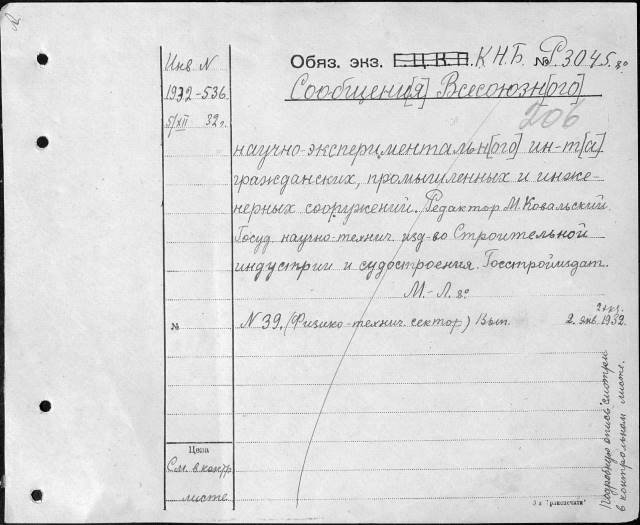 Инв N
1932-536
5/XII 32 г.
Обяз. экз. Е.Ц.К.П. К.Н.Б. № Р.3045. 8°
Сообщени[я] Всесоюзн[ого]
206
научно-эксперименталь[ного] ин-т[а]
гражданских, промышленных и инже-
нерных сооружений. Редактор М. Ковальский.
Госуд. научно-технич. изд-во Строительной
индустрии и судостроения. Госстройиздат.
М.-Л. 8°
№
N 39. (Физико-технич. сектор) Вып. 2. янв. 1932.
2 экз.
Подробную опись смотри
в контрольном листе.
Цена
См. в контр.
листе